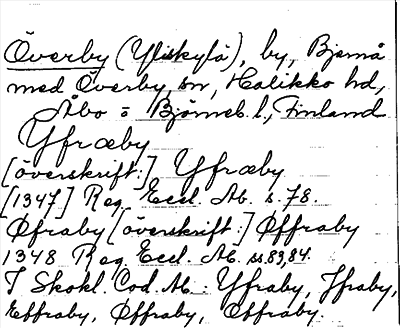 Överby (Yliskylä), by, Bjernå
med Överby sn, Halikko hd,
Åbo o Björneb. l., Finland
Yfræby
[överskrift:] Yfræby
[1347] Reg. Eccl. Ab. s. 78.
Øfraby [överskrift:] Øffraby
1348 Reg. Eccl. Ab. ss. 83, 84.
I Skokl. Cod. Ab.: Yffraby, Jfraby,
Effraby, Øffraby, Offraby.